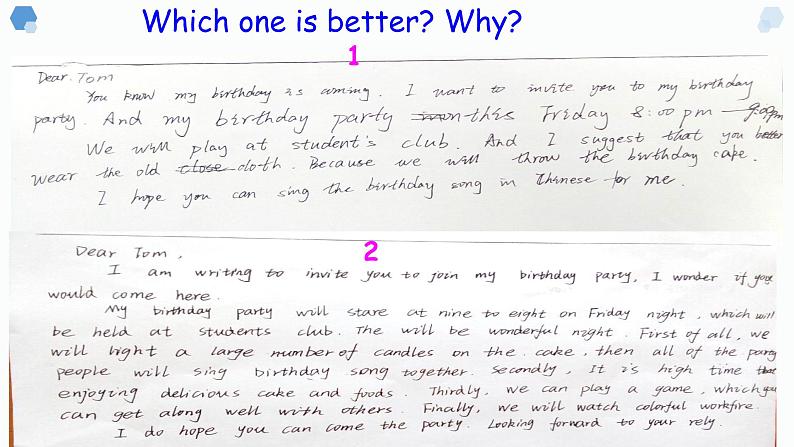 Which one is better? Why?
1
Dear. Tom
You know my birthday is coming. I want to invite you to my birthday
party. And my birthday party on this Friday 8:00 pm — 9:00pm
We will play at student's club. And I suggest that you better
wear the old close cloth. Because we will throw the birthday cake.
I hope you can sing the birthday song in Chinese for me.
2
Dear Tom,
I am writing to invite you to join my birthday party, I wonder if you
would come here.
My birthday party will stare at nine to eight on Friday night, which will
be held at students club. The will be wonderful night. First of all, we
will light a large number of candles on the. cake, then all of the party
people will sing birthday song together. Secondly, It is high time that
enjoying delicious cake and foods. Thirdly, we can play a game, which you
can get along well with others. Finally, we will watch colorful workfire.
I do hope you can come the party. Looking forward to your rely.